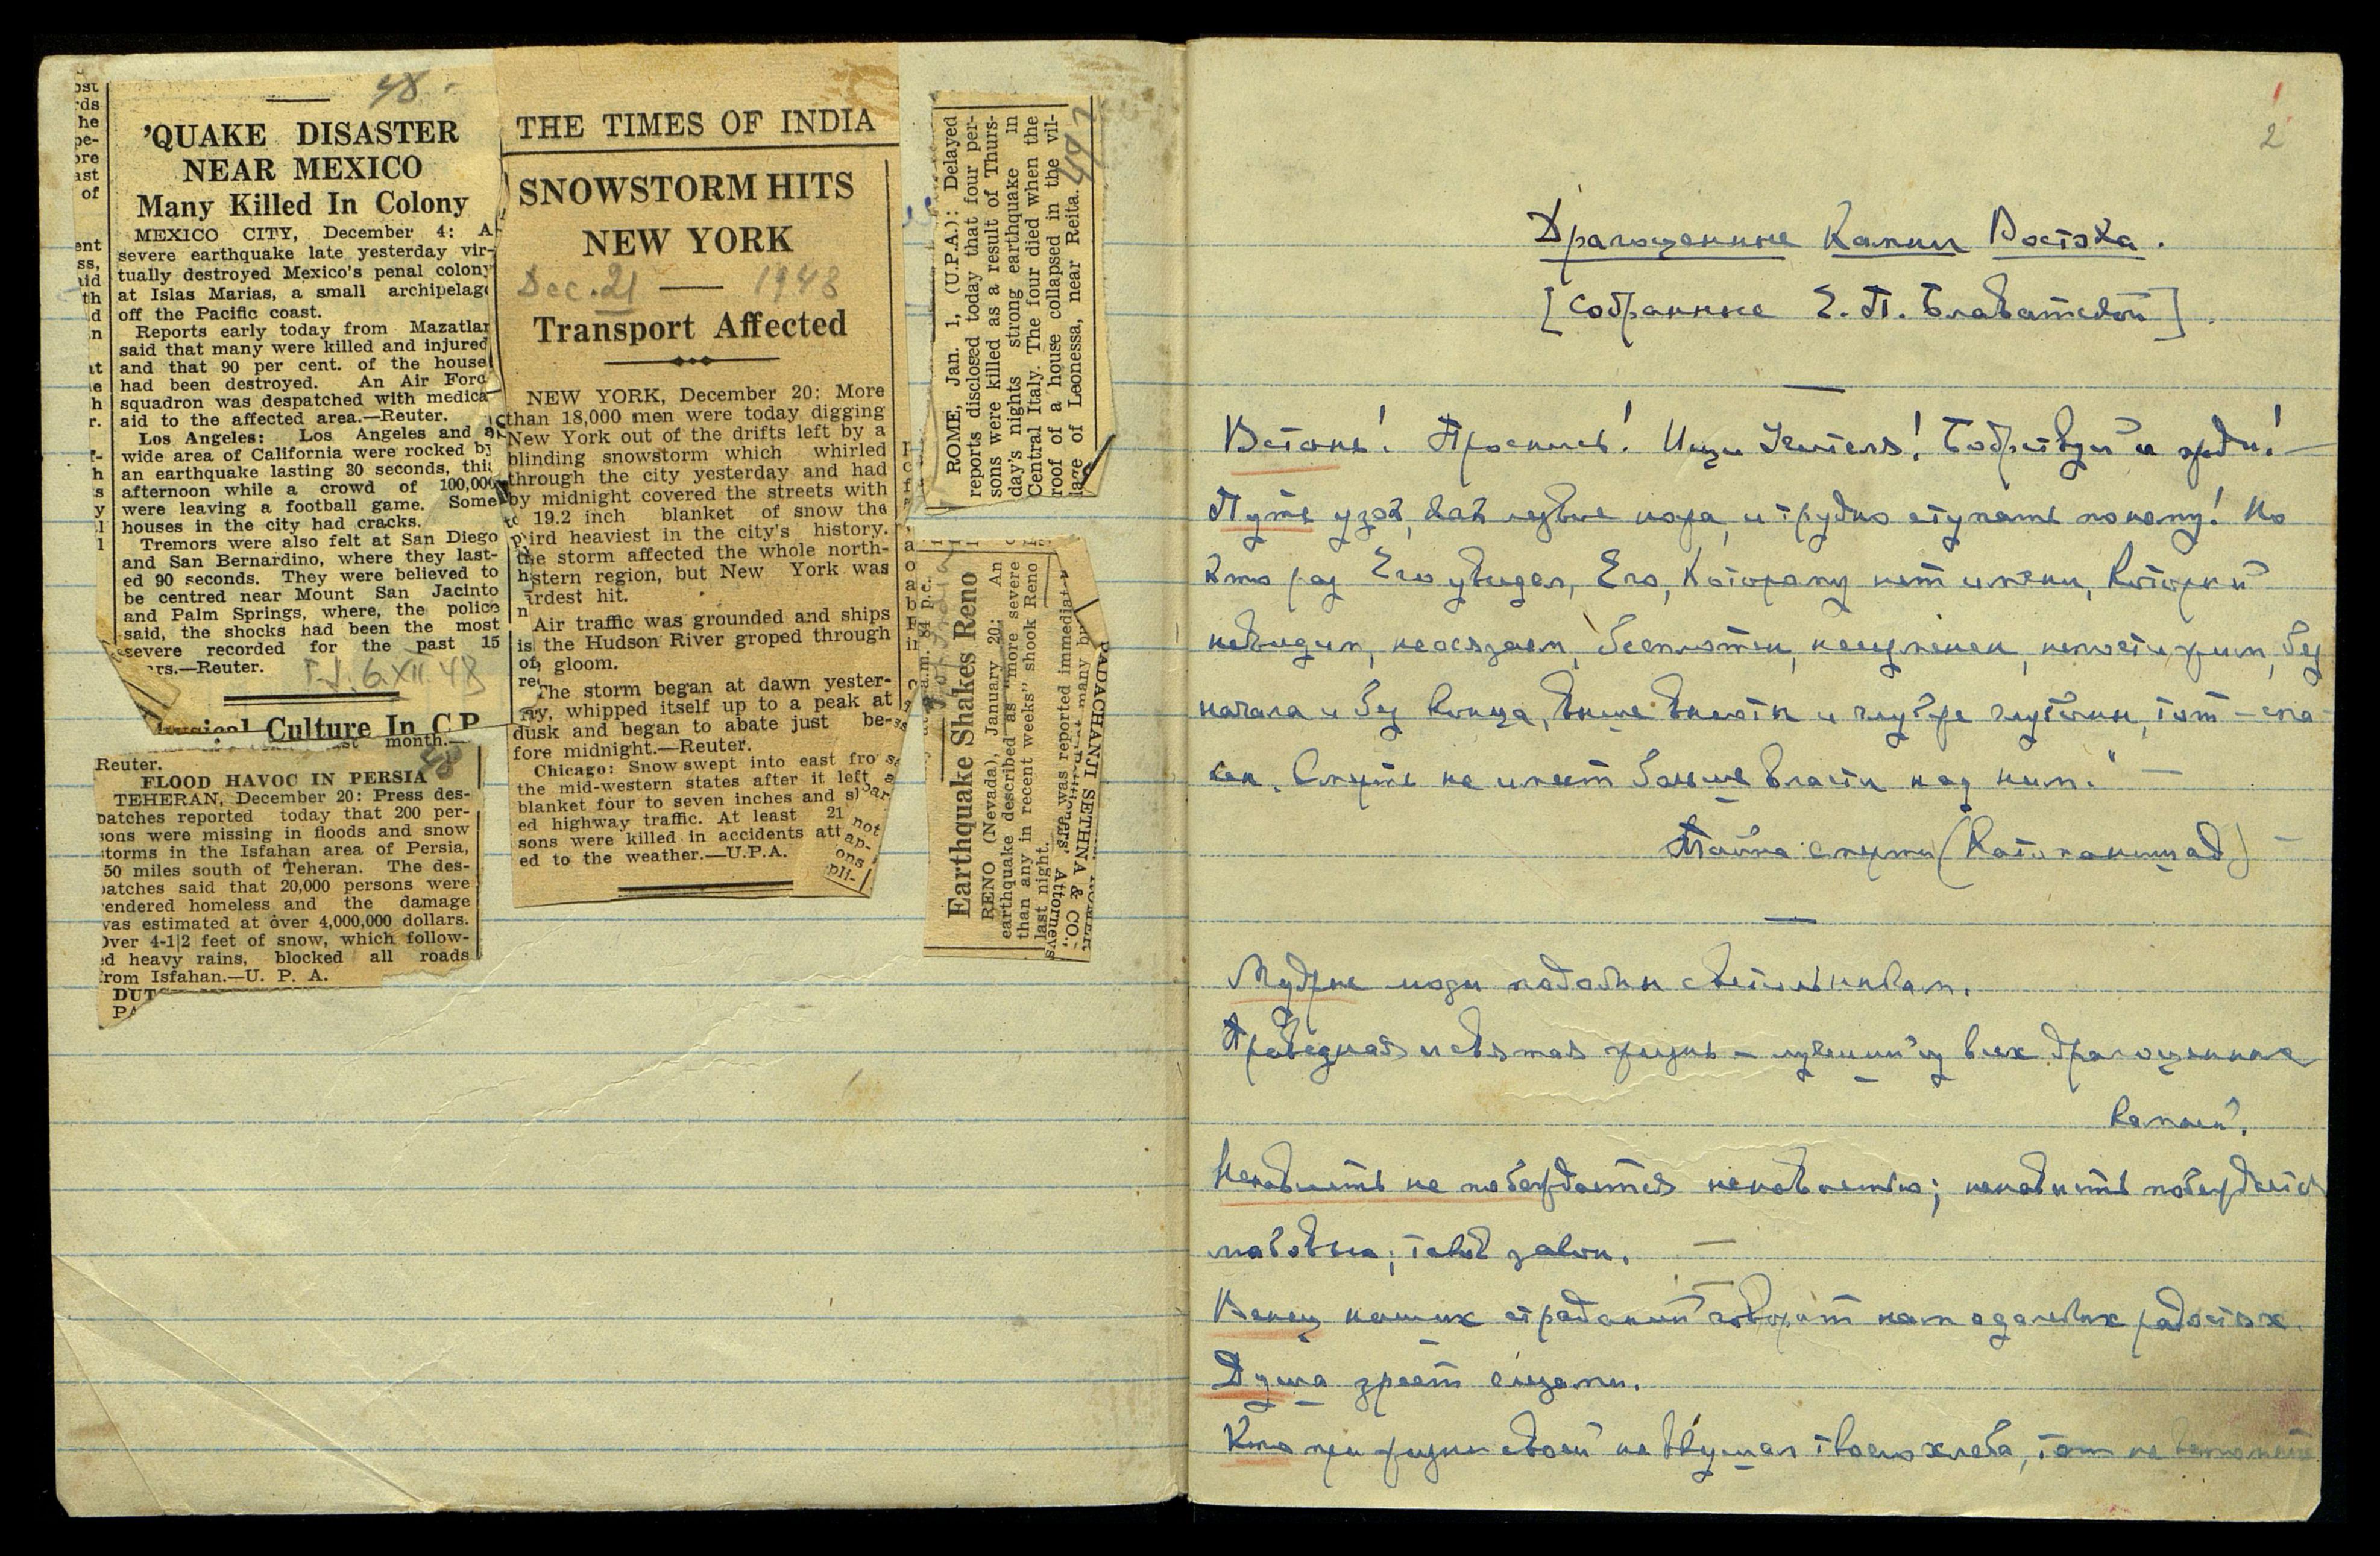 48.
'QUAKE DISASTER
NEAR MEXICO
Many Killed In Colony
MEXICO CITY, December 4: A
severe earthquake late yesterday vir-
tually destroyed Mexico's penal colony
at Islas Marias, a small archipelago
off the Pacific coast.
Reports early today from Mazatlan
said that many were killed and injured
and that 90 per cent. of the house
had been destroyed. An Air Forc
squadron was despatched with medica
aid to the affected area.—Reuter.
Los Angeles: Los Angeles and a
wide area of California were rocked by
an earthquake lasting 30 seconds, this
afternoon while a crowd of 100,000
were leaving a football game. Some
houses in the city had cracks.
Tremors were also felt at San Diego
and San Bernardino, where they last-
ed 90 seconds. They were believed to
be centred near Mount San Jacinto
and Palm Springs, where, the police
said, the shocks had been the most
severe recorded for the past 15
rs.—Reuter.
6.XII.48
Culture In C.P
month.—
Reuter.
48
FLOOD HAVOC IN PERSIA
TEHERAN, December 20: Press des-
patches reported today that 200 per-
sons were missing in floods and snow
storms in the Isfahan area of Persia,
50 miles south of Teheran. The des-
patches said that 20,000 persons were
rendered homeless and the damage
was estimated at over 4,000,000 dollars.
Over 4-1|2 feet of snow, which follow-
ed heavy rains, blocked all roads
from Isfahan.—U. P. A.
DUT
PA
THE TIMES OF INDIA
SNOWSTORM HITS
NEW YORK
Dec. 21 — 1948
Transport Affected
NEW YORK, December 20: More
than 18,000 men were today digging
New York out of the drifts left by a
blinding snowstorm which whirled
through the city yesterday and had
by midnight covered the streets with
19.2 inch blanket of snow the
ird heaviest in the city's history.
the storm affected the whole north-
stern region, but New York was
ardest hit.
Air traffic was grounded and ships
the Hudson River groped through
gloom.
The storm began at dawn yester-
ay, whipped itself up to a peak at
dusk and began to abate just be-
fore midnight.—Reuter.
Chicago: Snow swept into east fro
the mid-western states after it left a
blanket four to seven inches and s
ed highway traffic. At least 21
sons were killed in accidents att
ed to the weather.—U.P.A.
ROME, Jan. 1, (U.P.A.): Delayed
reports disclosed today that four per-
sons were killed as a result of Thurs-
day's nights strong earthquake in
Central Italy. The four died when the
roof of a house collapsed in the vil-
lage of Leonessa, near Reita.
Earthquake Shakes Reno
RENO (Nevada), January 20: An
earthquake described as "more severe
than any in recent weeks" shook Reno
last night.
was reported immediat
PADACHANJI SETHNA & CO.,
Attorneys
2
Драгоценные Камни Востока.
[собранные Е. П. Блаватской].
Встань! Проснись! Ищи Учителя! Бодрствуй и зри!
Путь узок, как лезвие ножа, и трудно ступать по нему! Но
кто раз Его увидел, Его, Которому нет имени, Который
невидим, неосязаем, бесплотен, неизменен, непостижим, без
начала и без конца, выше высоты и глубже глубины, тот – спа
сен. Смерть не имеет больше власти над ним."
Тайна смерти (Катопанишад)
Мудрые люди подобны светильникам.
Праведная и святая жизнь – лучший из всех драгоценных
камней.
Ненависть не побеждается ненавистью; ненависть побеждается
любовью; таков закон.
Венец наших страданий говорит нам о далеких радостях.
Душа зреет слезами.
Кто при жизни своей не вкушал твоего хлеба, тот не вспомнит